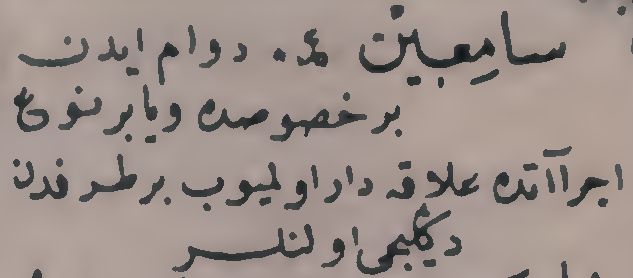 سامعین . دوام ایدن
بر خصوصده ویا بر نوع
اجراآتده علاقه دار اولمیوب بر طرفدن
دیكلیجی اولنلر